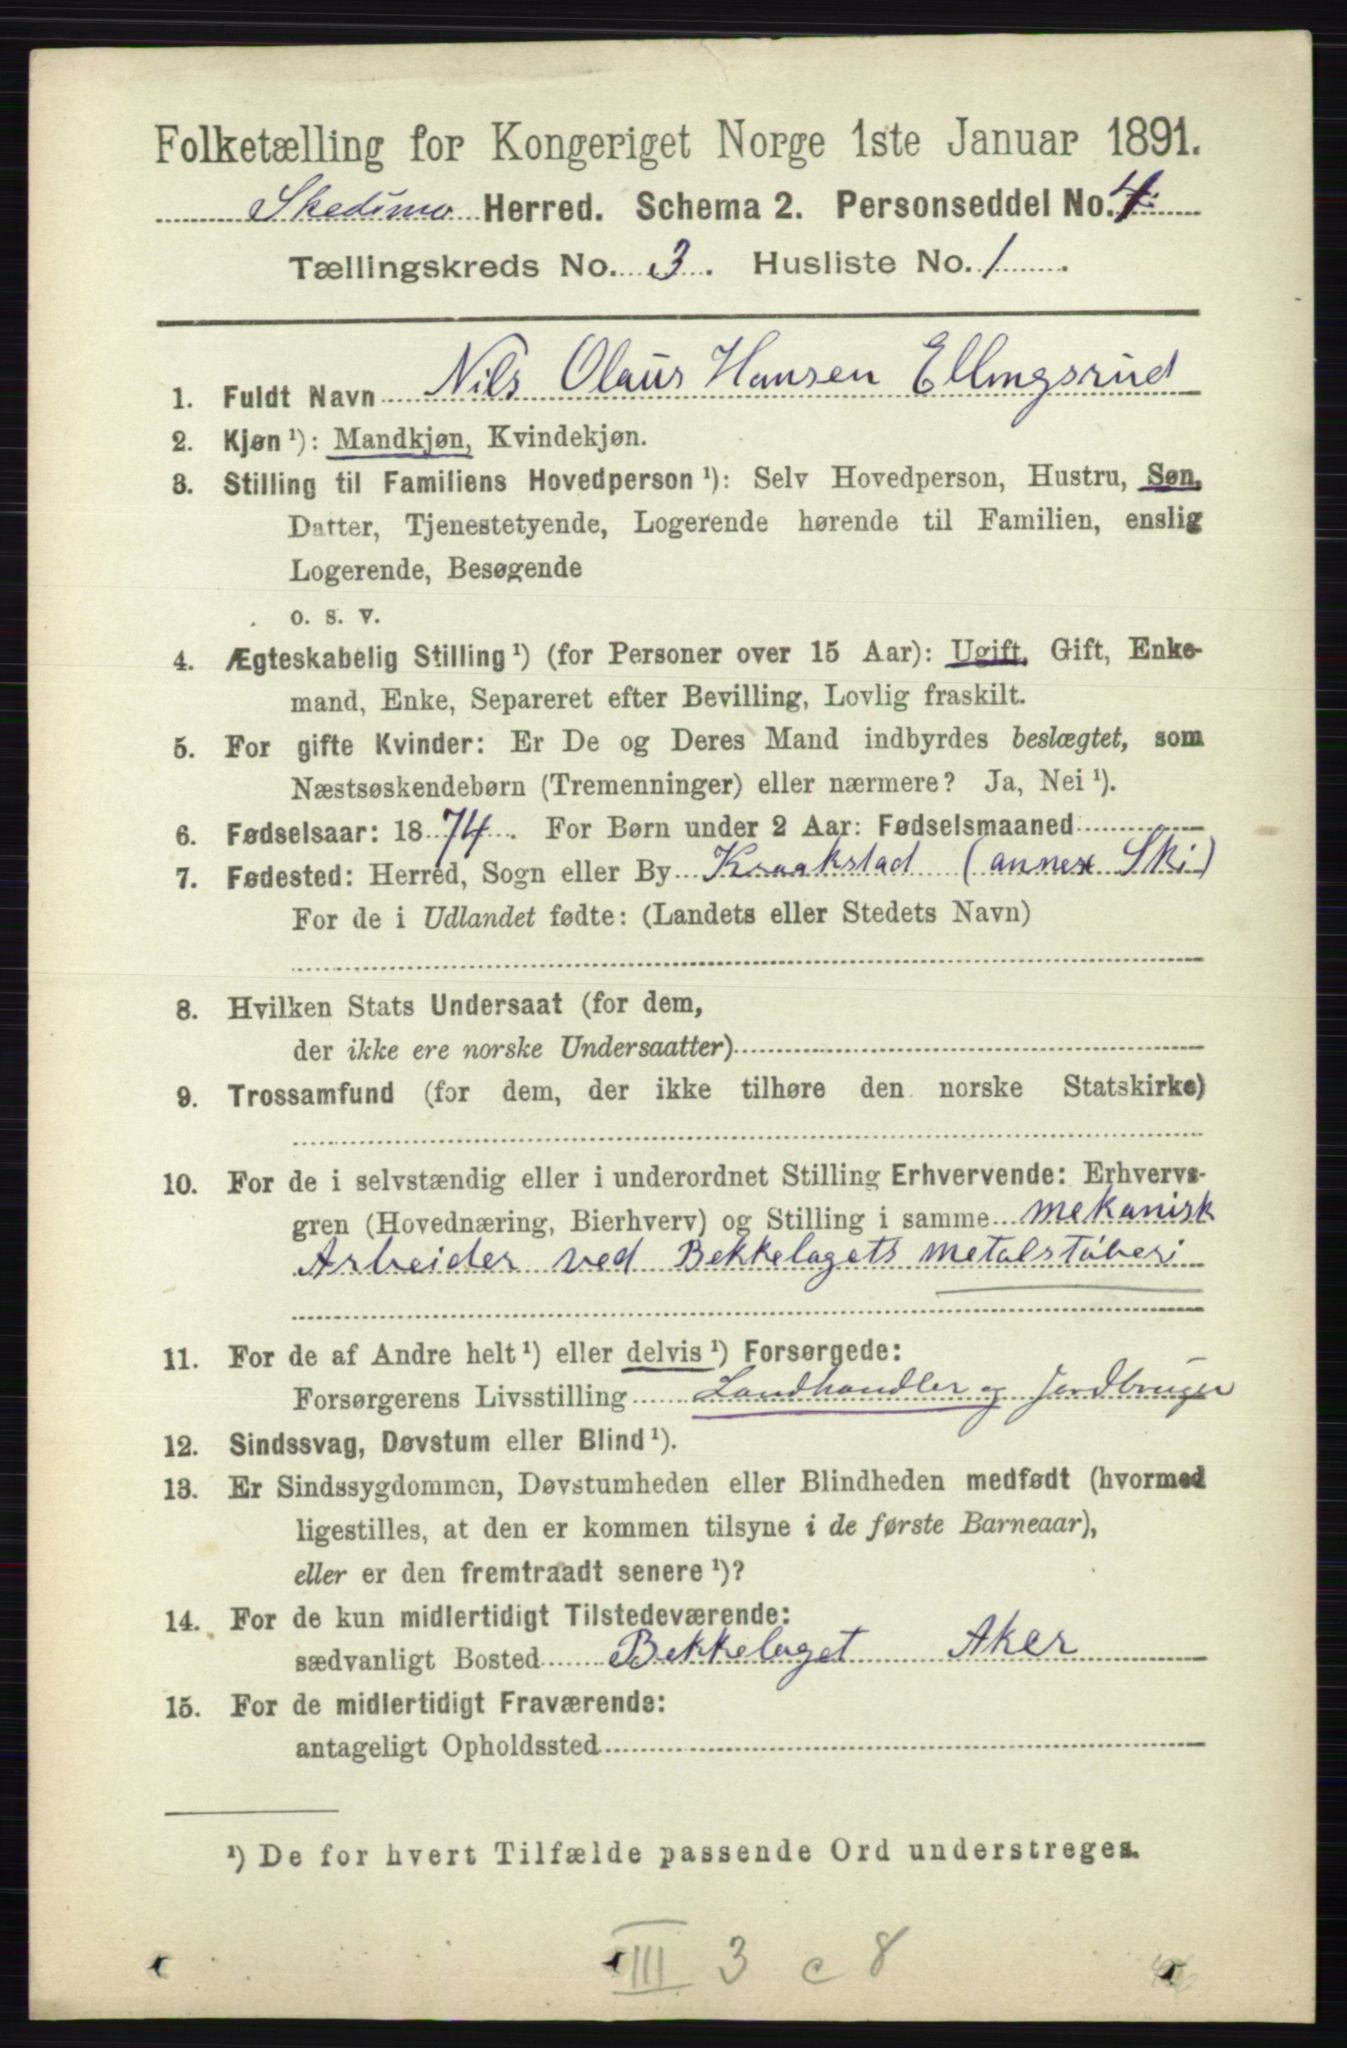 Folketælling for Kongeriget Norge 1ste Januar 1891.
Skedsmo Herred. Schema 2. Personseddel No. 4.
Tællingskreds No. 3. Husliste No. 1.
1. Fuldt Navn Nils Olaus Hansen Ellingsrud
2. Kjøn ¹): Mandkjøn, Kvindekjøn.
3. Stilling til Familiens Hovedperson ¹): Selv Hovedperson, Hustru, Søn,
Datter, Tjenestetyende, Logerende hørende til Familien, enslig
Logerende, Besøgende
o. s. v.
4. Ægteskabelig Stilling ¹) (for Personer over 15 Aar): Ugift, Gift, Enke-
mand, Enke, Separeret efter Bevilling, Lovlig fraskilt.
5. For gifte Kvinder: Er De og Deres Mand indbyrdes beslægtet, som
Næstsøskendebørn (Tremenninger) eller nærmere? Ja, Nei ¹).
6. Fødselsaar: 1874. For Børn under 2 Aar: Fødselsmaaned
7. Fødested: Herred, Sogn eller By Kraakstad (annex Ski)
For de i Udlandet fødte: (Landets eller Stedets Navn)
8. Hvilken Stats Undersaat (for dem,
der ikke ere norske Undersaatter)
9. Trossamfund (for dem, der ikke tilhøre den norske Statskirke)
10. For de i selvstændig eller i underordnet Stilling Erhvervende: Erhvervs-
gren (Hovednæring, Bierhverv) og Stilling i samme mekanisk
Arbeider ved Bekkelagets metalstøberi
11. For de af Andre helt ¹) eller delvis ¹) Forsørgede:
Forsørgerens Livsstilling Landhandler og Jordbruger
12. Sindssvag, Døvstum eller Blind ¹).
13. Er Sindssygdommen, Døvstumheden eller Blindheden medfødt (hvormed
ligestilles, at den er kommen tilsyne i de første Barneaar),
eller er den fremtraadt senere ¹)?
14. For de kun midlertidigt Tilstedeværende:
sædvanligt Bosted Bekkelaget Aker
15. For de midlertidigt Fraværende:
antageligt Opholdssted
¹) De for hvert Tilfælde passende Ord understreges.
III 3 c 8